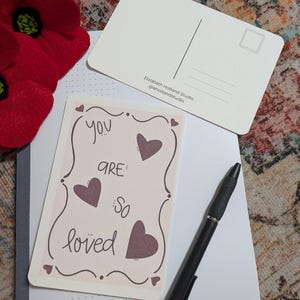 Elizabeth Holland Studio
@ehollandstudio
YOU
ARE
SO
loved